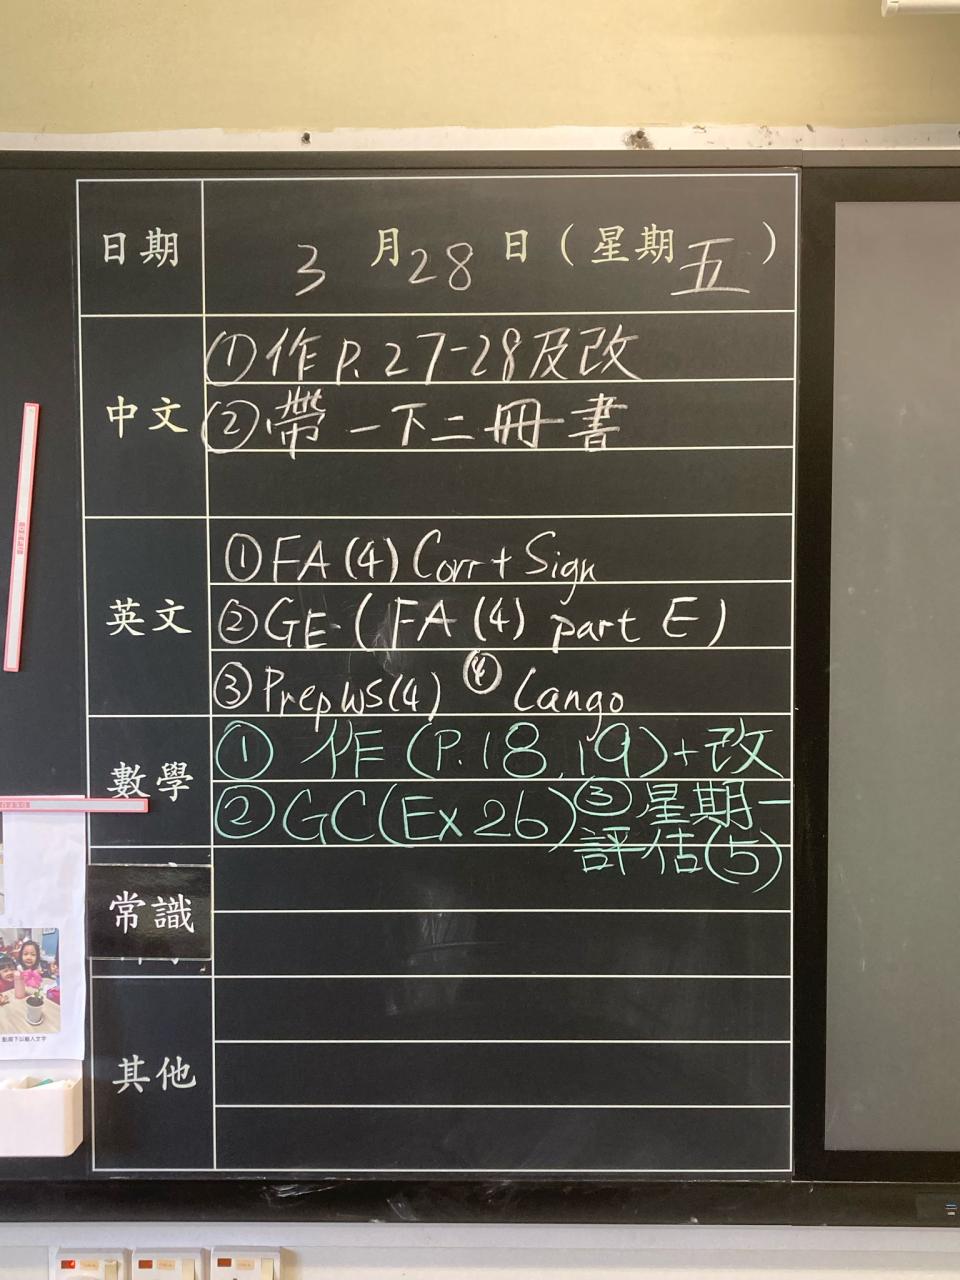 日期 3月28日(星期五)
中文
①作P.27-28及改
②帶一下二冊書
英文
①FA(4) Corr + Sign
②GE (FA (4) part E)
③Prep WS(4) ④ Lango
數學
① 作(P.18,19)+改
②GC(Ex 26) ③星期一
評估(5)
常識
其他
點圖下以輸入文字